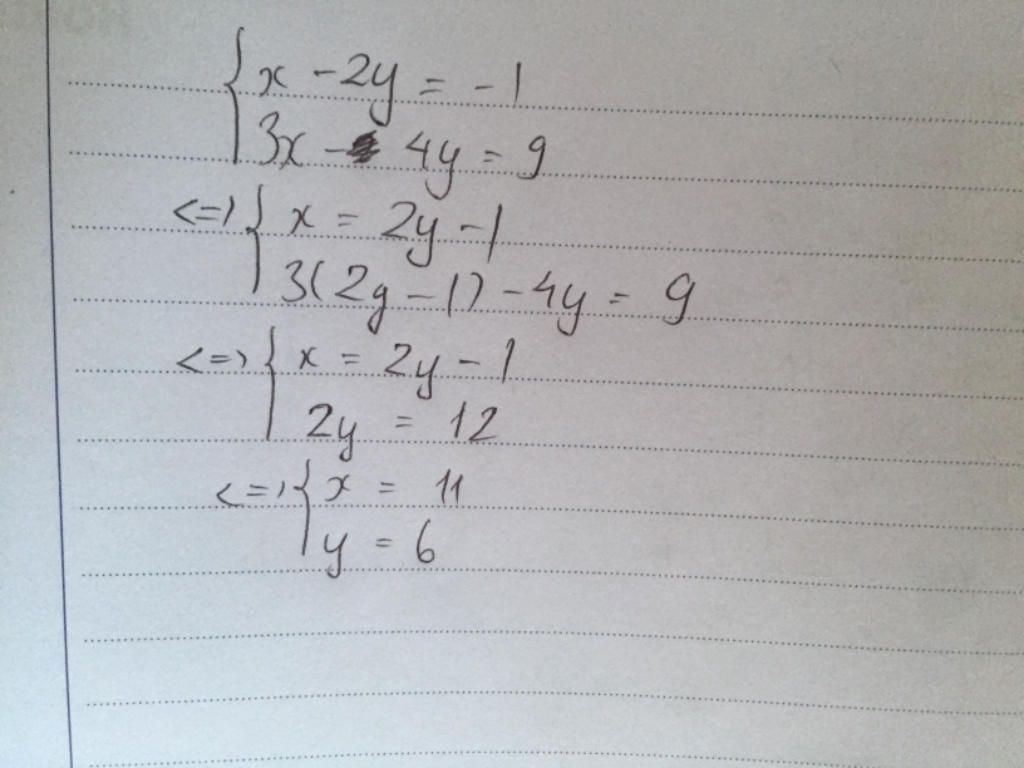 { x - 2y = -1
3x - 4y = 9
<=> { x = 2y - 1
3(2y - 1) - 4y = 9
<=> { x = 2y - 1
2y = 12
<=> { x = 11
y = 6